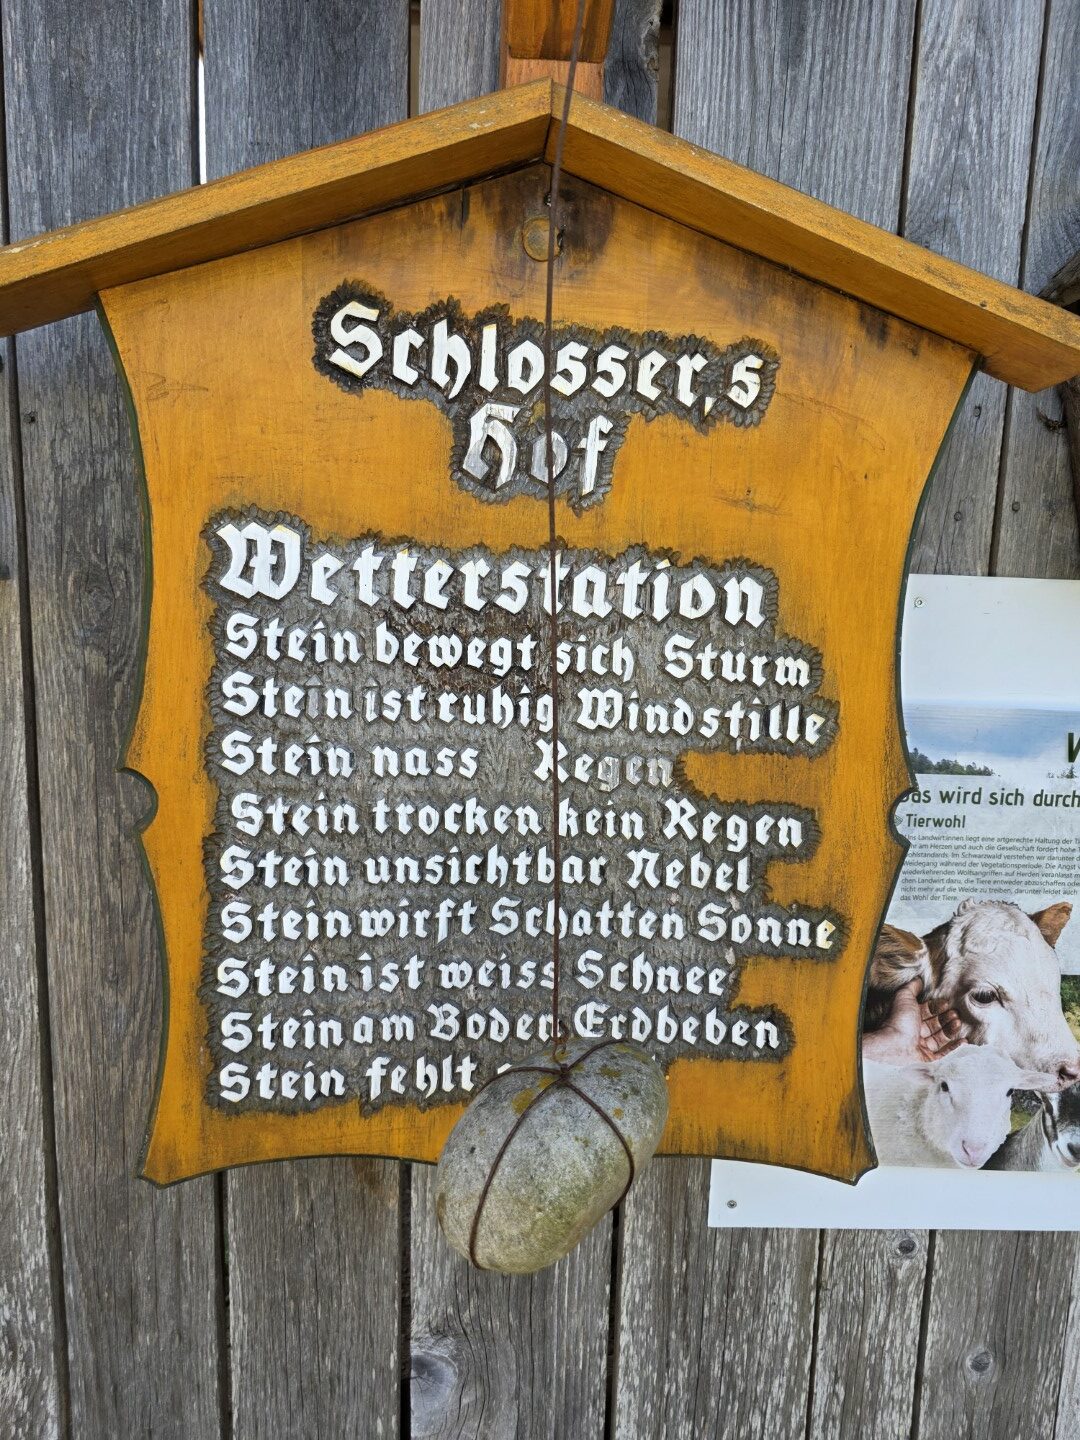 Schlosser,s
Hof
Wetterstation
Stein bewegt sich Sturm
Stein ist ruhig Windstille
Stein nass Regen
Stein trocken kein Regen
Stein unsichtbar Nebel
Stein wirft Schatten Sonne
Stein ist weiss Schnee
Stein am Boden Erdbeben
Stein fehlt
Das wird sich durch
Tierwohl